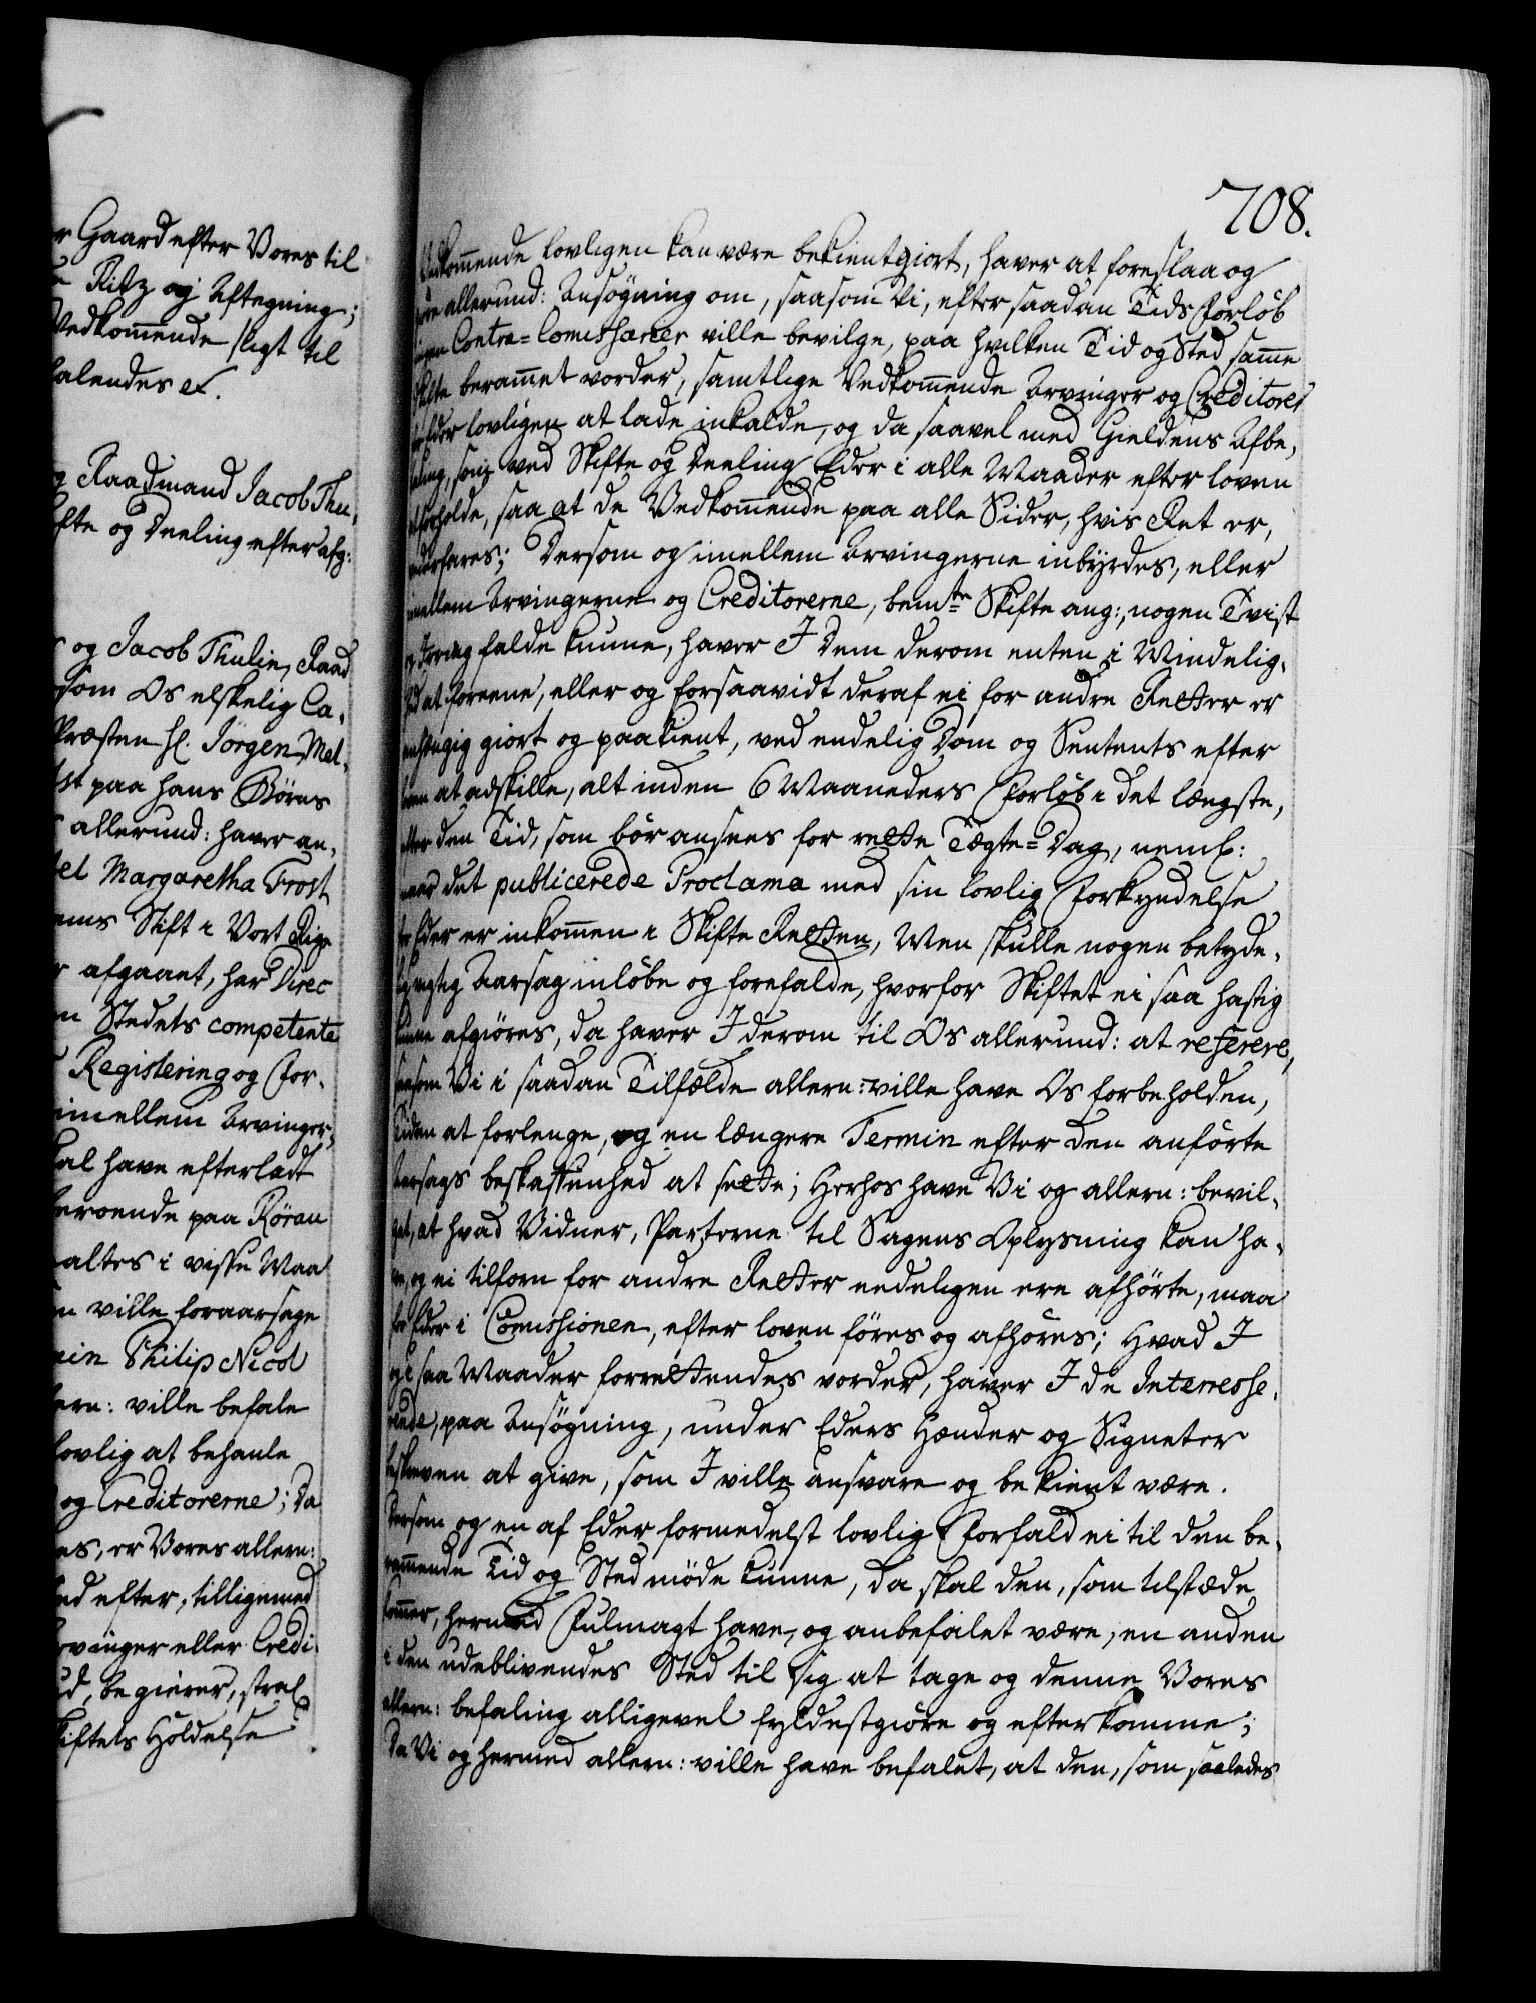 r Gaard efter Vores til
Ritz og Aftegning;
Vedkommende sligt til
talendes etc.
og Raadmand Jacob Thu-
ifte og Deeling efter afg:
og Jacob Thulin, Raad
som Os elskelig Ca-
Præsten Hl. Jörgen Mel-
st paa hans Börns
allerund: haver an-
tel Margaretha Frost
ems Stift i Vort Rige
afgaaet, har Direc
Stedets competente
Registering og For-
imellem Arvinger,
kal have efterladt
beroende paa Röraas
altes i visse Maa
ville foraarsage
ein Philip Nicol
lern: ville befale
lovlig at behanle
og Creditorerne; Da
es, er Vores allern:
ed efter, tilligemed
rvinger eller Credi-
ud, begierer, strax
kiftets Holdelse
708.
Vedkommende lovligen kan være bekientgiort, haver at foreslaa og
giöre allerund: Ansögning om, saasom Vi, efter saadan Tids Forlöb
ingen Contra-Comissarier ville bevilge, paa hvilken Tid og Sted samme
Skifte berammet vorder, samtlige Vedkommende Arvinger og Creditorer
I eller lovligen at lade inkalde, og da saavel med Gieldens Afbe-
taling, som ved Skifte og Deeling Eder i alle Maader efter Loven
at forholde, saa at de Vedkommende paa alle Sider, hvis Ret er,
vederfares; Dersom og imellem Arvingerne inbyrdes, eller
imellem Arvingerne og Creditorerne, bemte Skifte ang:, nogen Tvist
og Irring falde kunne, haver I dem derom enten i Mindelig-
hed at foreene, eller og forsaavidt deraf ei for andre Retter er
anhængig giort og paakient, ved endelig Dom og Sentents efter
Loven at adskille, alt inden 6 Maaneders Forlöb i det længste,
efter den Tid, som bör ansees for rette Tægte-Dag, neml:
naar det publicerede Proclama med sin lovlig Forkyndelse
for Eder er inkommen i Skifte Retten, Men skulle nogen betyde-
lig vigtig Aarsag inlöbe og forefalde, hvorfor Skiftet ei saa hastig
kunne afgiöres, da haver I derom til Os allerund: at referere,
saasom Vi i saadan Tilfælde allern: ville have Os forbeholden,
Tiden at forlenge, og en længere Termin efter den anförte
Aarsags beskaffenhed at sette; Herhos have Vi og allern: bevil-
get, at hvad Vidner, Parterne til Sagens Oplysning kan ha-
ve, og ei tilforn for andre Retter eedeligen ere afhörte, maa
for Eder i Comissionen, efter Loven föres og afhöres; Hvad I
og i saa Maader forrettendes vorder, haver I de Interesse-
rede, paa Ansögning, under Eders Hænder og Signeter
beskreven at give, som I ville ansvare og bekient være.
Dersom og en af Eder formedelst lovlig Forfald ei til den be-
rammende Tid og Sted möde kunne, da skal den, som tilstæde
kommer, hermed Fulmagt have, og anbefalet være, en anden
i den udeblivendes Sted til sig at tage og denne Vores
allern: befaling alligevel fyldestgiöre og efterkomme;
Da Vi og hermed allern: ville have befalet, at den, som saaledes